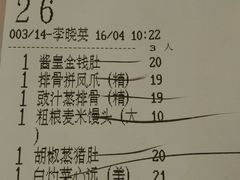 26
003/14-李晓英 16/04 10:22
3 人
1 酱皇金钱肚 20
1 排骨拼凤爪(精) 19
1 豉汁蒸排骨(精) 19
1 粗粮麦米馒头(大 10
)
1 胡椒蒸猪肚 20
1 白灼菜心远(善) 21